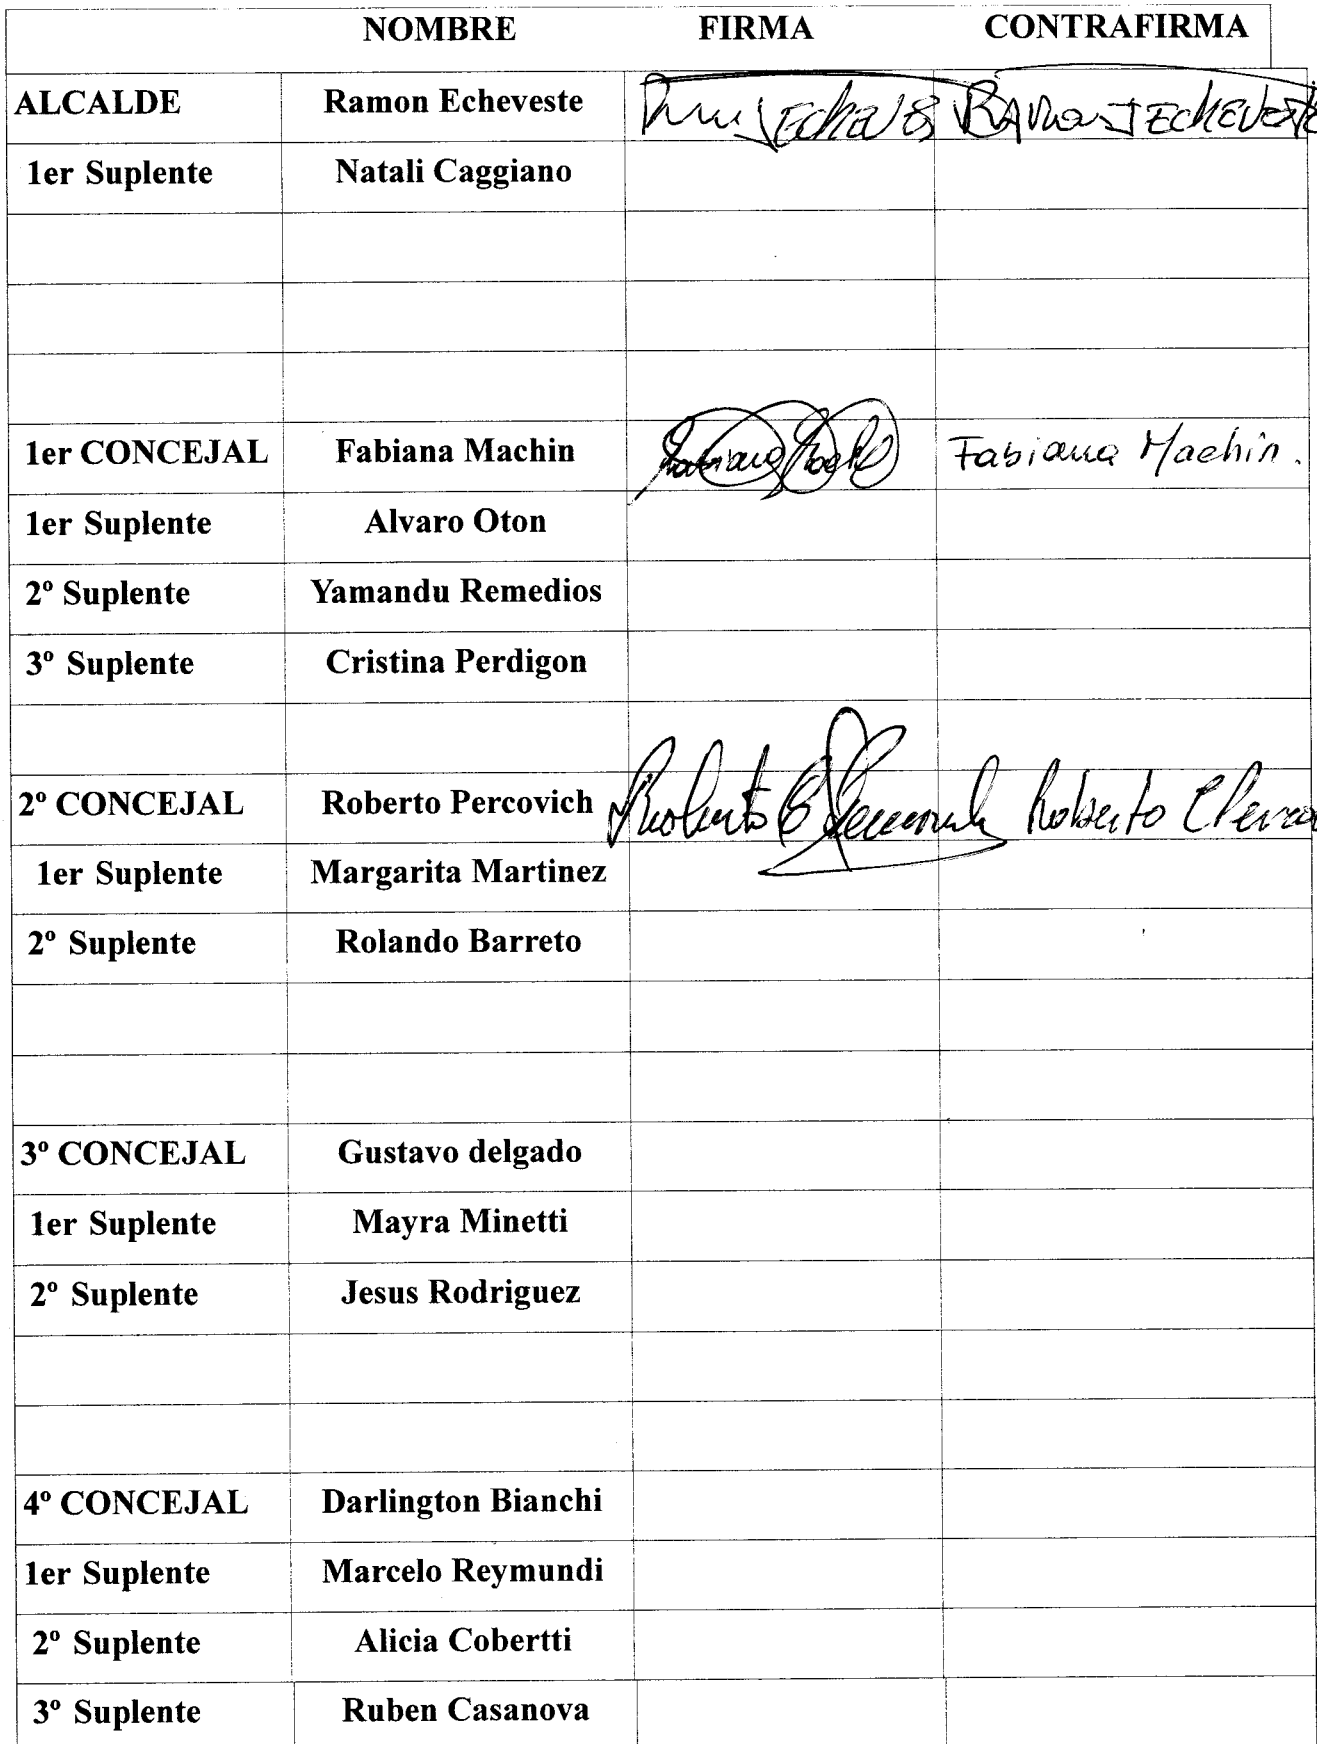 NOMBRE FIRMA CONTRAFIRMA
ALCALDE Ramon Echeveste Ramon J Echeveste
1er Suplente Natali Caggiano
1er CONCEJAL Fabiana Machin Fabiana Machin Fabiana Machin.
1er Suplente Alvaro Oton
2º Suplente Yamandu Remedios
3º Suplente Cristina Perdigon
2º CONCEJAL Roberto Percovich Roberto Roberto
1er Suplente Margarita Martinez
2º Suplente Rolando Barreto
3º CONCEJAL Gustavo delgado
1er Suplente Mayra Minetti
2º Suplente Jesus Rodriguez
4º CONCEJAL Darlington Bianchi
1er Suplente Marcelo Reymundi
2º Suplente Alicia Cobertti
3º Suplente Ruben Casanova